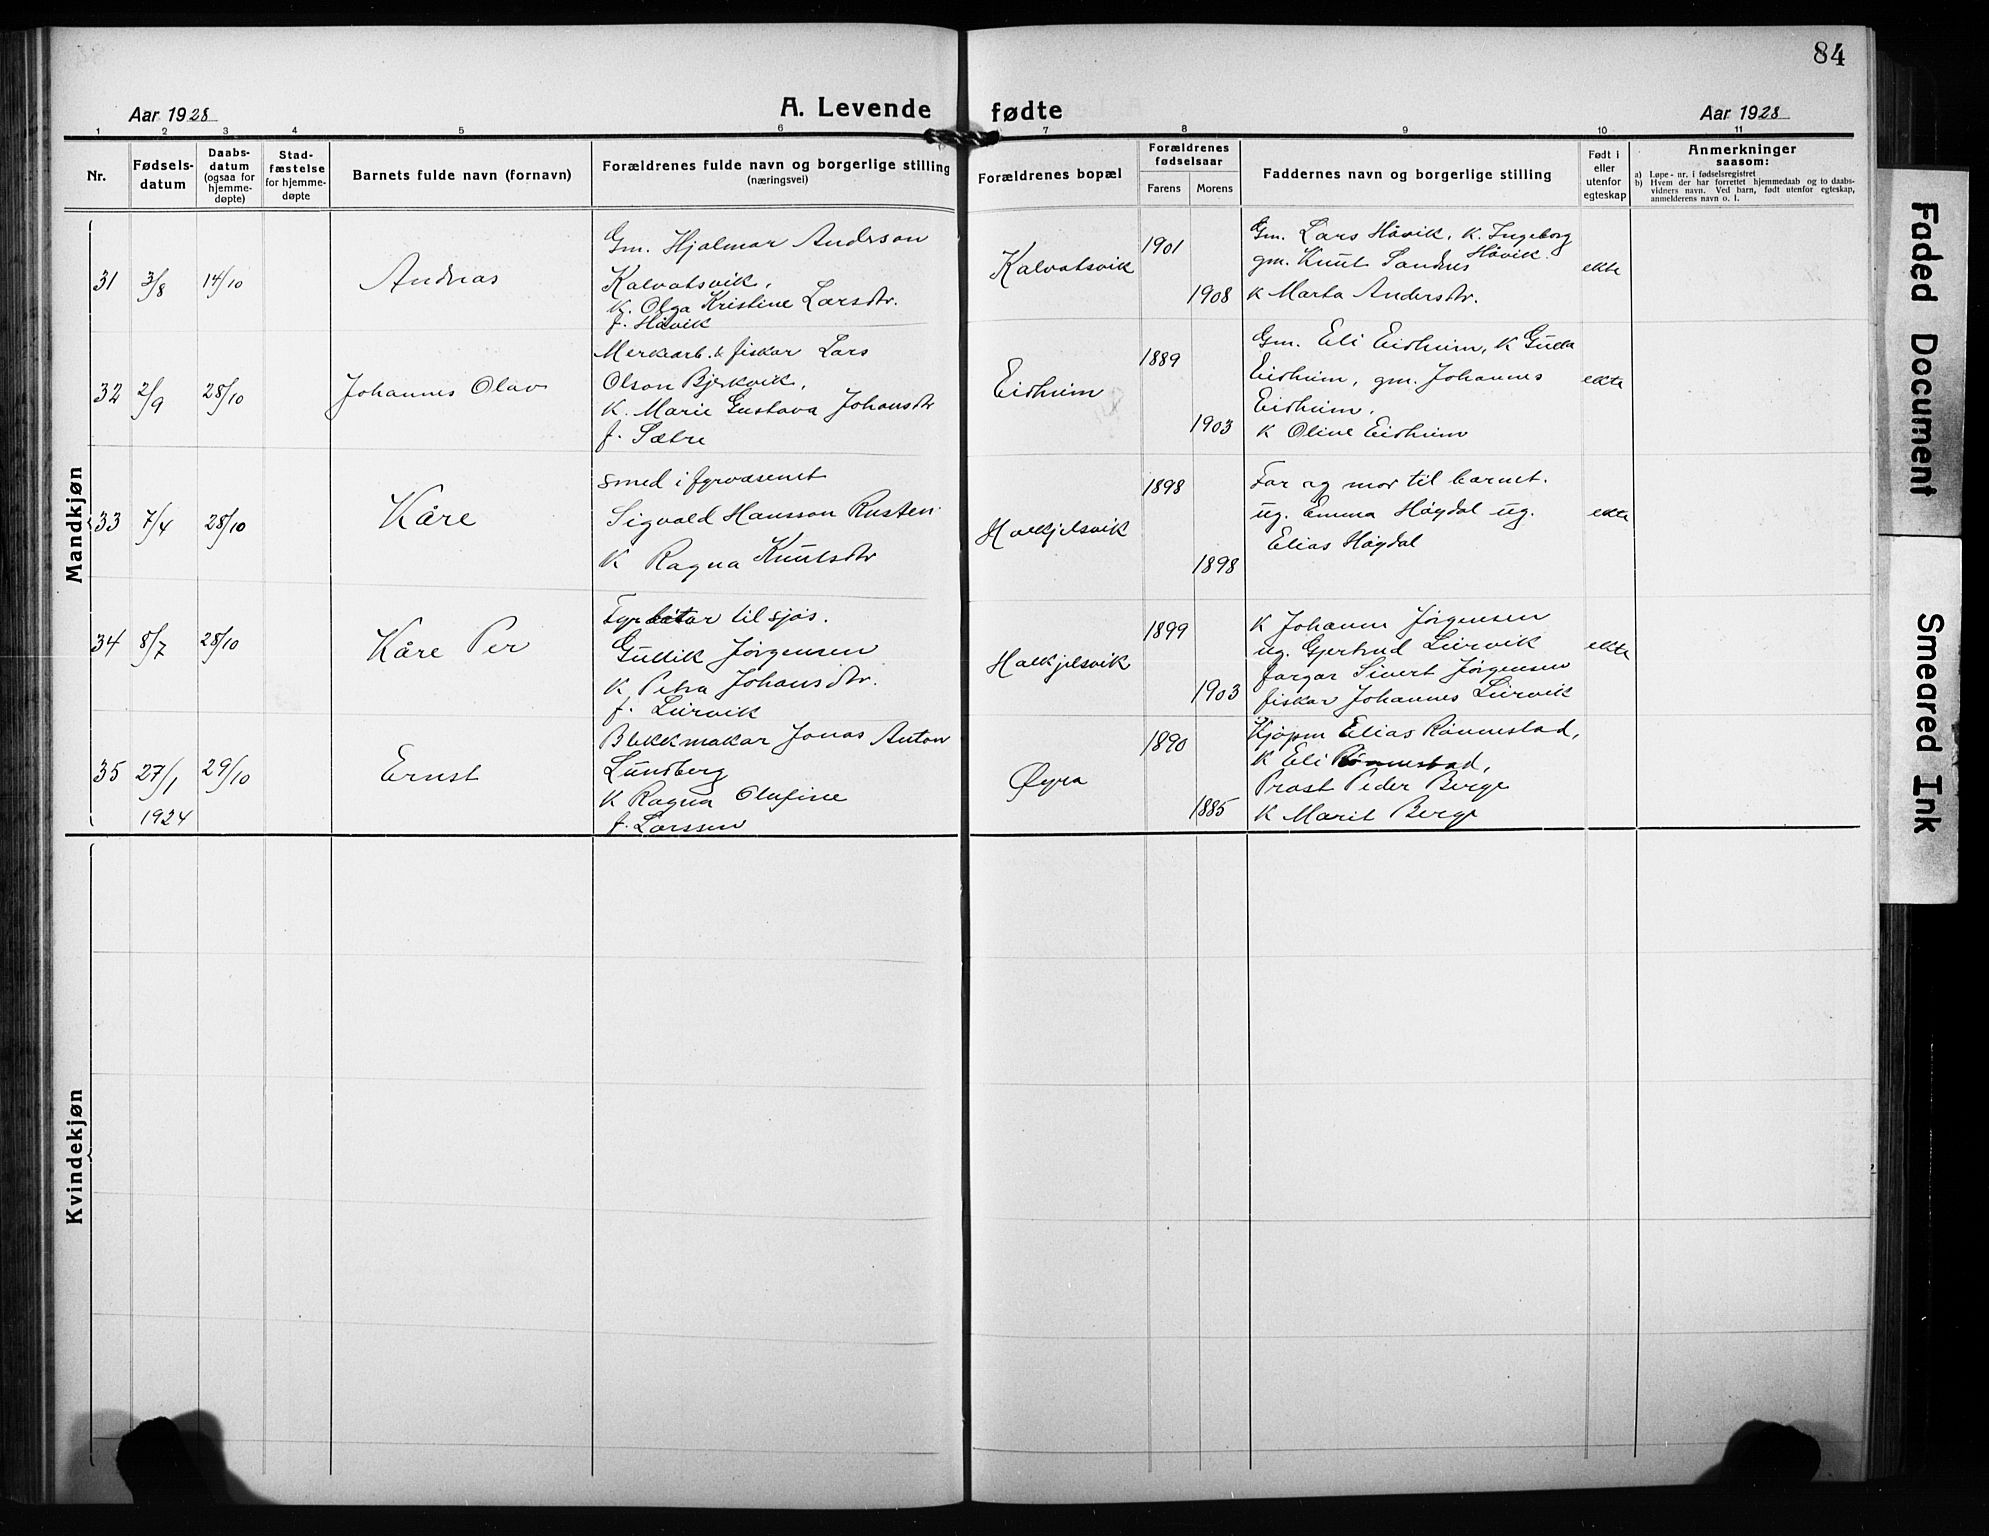 84
Aar 1928
A. Levende fødte
Aar 1928
1 2 3 4 5 6 7 8 9 10 11
Nr.
Fødsels-
datum
Daabs-
datum
(ogsaa for
hjemme-
døpte)
Stad-
fæstelse
for hjemme-
døpte
Barnets fulde navn (fornavn)
Forældrenes fulde navn og borgerlige stilling
(næringsvei)
Forældrenes bopæl
Forældrenes
fødselsaar
Farens
Morens
Faddernes navn og borgerlige stilling
Født i
eller
utenfor
egteskap
Anmerkninger
saasom:
a) Løpe-nr. i fødselsregistret
b) Hvem der har forrettet hjemmedaab og to daabs-
vidners navn. Ved barn, født utenfor egteskap,
anmelderens navn o. l.
Mandkjøn
31
3/8
14/10
Andreas
Gm. Hjalmar Anderson
Kalvatsvik,
K. Olga Kristine Larsdtr.
f. Håvik
Kalvatsvik
1901
1908
Gm. Lars Håvik, K. Ingeborg
Håvik
gm. Knut Sandnes
K Marta Andersdtr.
ekte
32
2/9
28/10
Johannes Olav
Merkearb. & fiskar Lars
Olson Bjerkvik,
K. Marie Gustava Johansdtr
f. Sætre
Eidheim
1889
1903
Gm. Eli Eidheim, K Guda
Eidheim, gm. Johannes
Eidheim,
K Oline Eidheim
ekte
33
7/4
28/10
Kåre
Smed i fyrvæsenet
Sigvald Hansson Rusten
K Ragna Knutsdtr
Halkjelsvik
1898
1898
Far og mor til barnet.
ug. Emma Høgdal ug.
Elias Høgdal
ekte
34
8/7
28/10
Kåre Per
Fyrbøtar til sjøs.
Gullik Jørgensen
K Petra Johansdtr.
f. Lurvik
Halkjelsvik
1899
1903
K Johanne Jørgensen
ug. Gjertrud Lurvik
fargar Sivert Jørgensen
fiskar Johannes Lurvik
ekte
35
27/1
1924
29/10
Ernst
Blekkmakar Jonas Anton
Lundberg
K Ragna Olufine
f. Larssen
Øyra
1890
1885
Kjøpm Elias Rønnestad,
K Eli Rønnestad,
Prost Peder Berge
K Marit Berge
Kvindekjøn
Faded Document
Smeared Ink